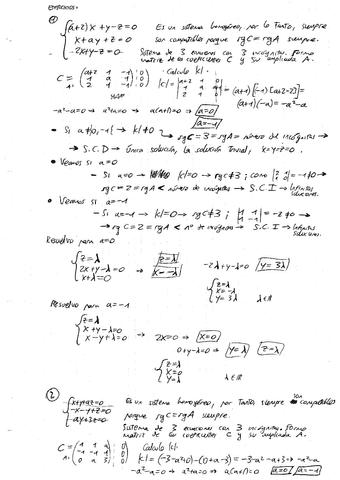 EJERCICIOS:
①
(a+2)x+y-z=0
x+ay+z=0
-2x+y-z=0
Es un sistema homogéneo, por lo Tanto, siempre
son compatibles porque rgC=rgA siempre.
Sistema de 3 ecuaciones con 3 incógnitas. Formo
matriz de los coeficientes C y su ampliada A.
Calculo |C|
-a²-a=0 → a²+a=0 → a(a+1)=0 → a=0
a=-1
• Si a≠0,-1 → |C|≠0 → rgC=3=rgA=número de incógnitas →
→ S.C.D → única solución, la solución trivial, x=y=z=0.
• Veamos si a=0
- Si a=0 → |C|=0 → rgC≠3; como
→ rgC=2=rgA < número de incógnitas → S.C.I → Infinitas soluciones.
• Veamos si a=-1
- Si a=-1 → |C|=0 → rgC≠3;
→ rgC=2=rgA < nº de incógnitas → S.C.I → Infinitas soluciones.
Resuelvo para a=0
z=λ
2x+y-λ=0
x+λ=0
→ z=λ
x=-λ
-2λ+y-λ=0 y=3λ
z=λ
x=-λ
y=3λ λ∈ℝ
Resuelvo para a=-1
z=λ
x+y-λ=0
x-y+λ=0
→ 2x=0 → x=0
0+y-λ=0 → y=λ z=λ
z=λ
x=0
y=λ λ∈ℝ
②
x+y+az=0
-x-y+z=0
Es un sistema homogéneo, por Tanto siempre son compatibles
porque rgC=rgA siempre.
Sistema de 3 ecuaciones con 3 incógnitas. Formo
matriz de los coeficientes C y su ampliada A.
Calculo |C|.
-a²-a=0 → a²+a=0 → a(a+1)=0 → a=0 a=-1